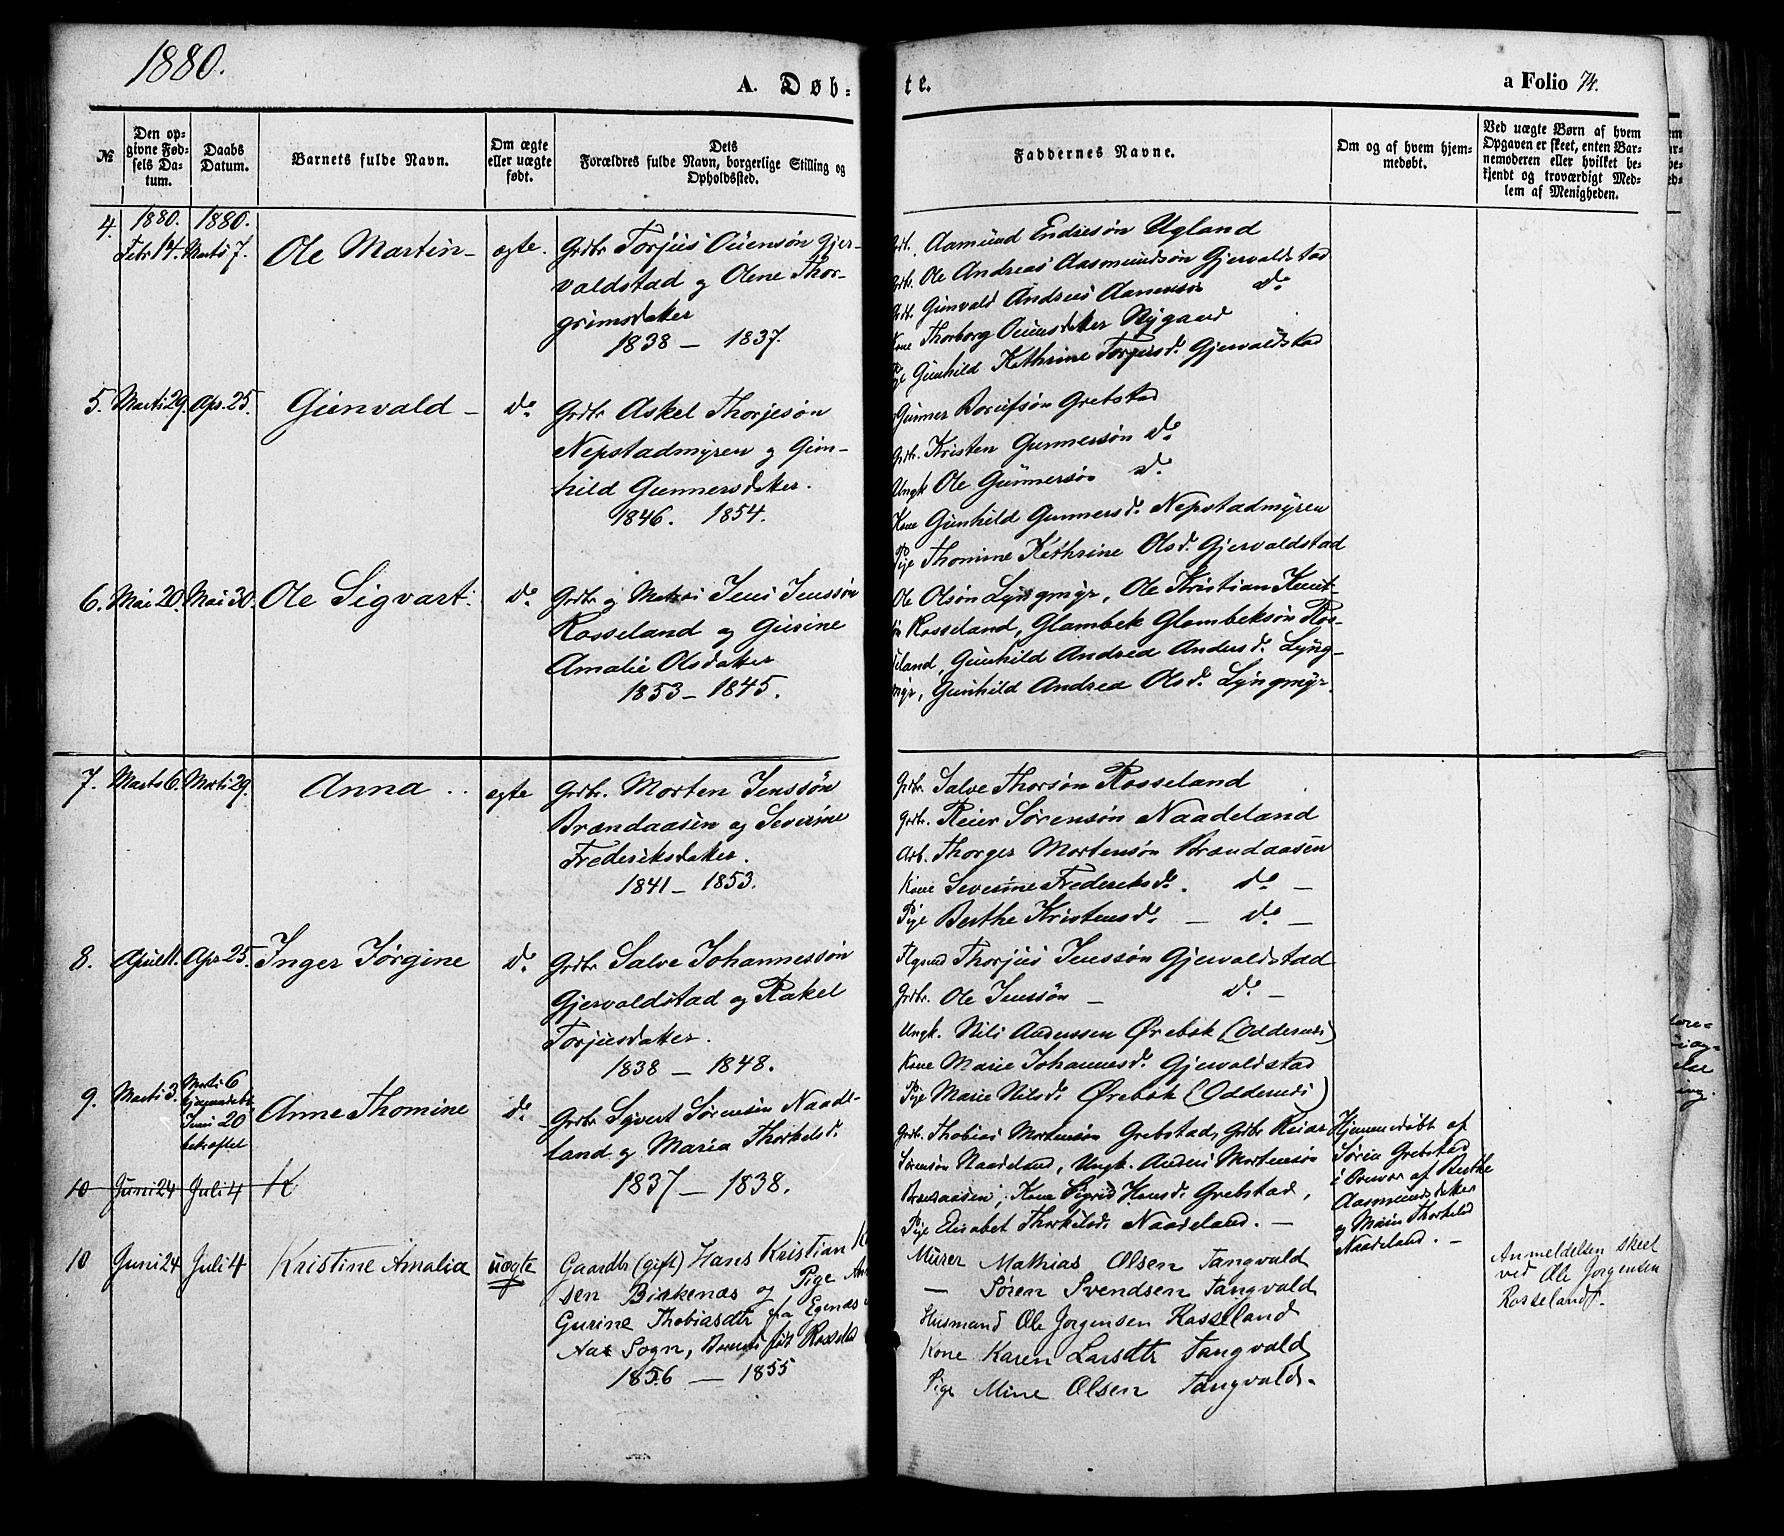 1880.
A. Døb=
te.
a Folio 74.
№
Den op=
givne Fød=
sels Da=
tum.
Daabs
Datum.
Barnets fulde Navn.
Om ægte
eller uægte
født.
Dets
Forældres fulde Navn, borgerlige Stilling og
Opholdssted.
Faddernes Navne.
Om og af hvem hjem=
medøbt.
Ved uægte Børn af hvem
Opgaven er skeet, enten Bar=
nemoderen eller hvilket be=
kjendt og troværdigt Med=
lem af Menigheden.
4. 1880. Febr 14. 1880. Marts 7. Ole Martin - ægte.
Grdbr Torjus Auensøn Gjer-
valdstad og Olene Thor-
grimsdatter
1838 - 1837.
Grdbr. Aamund Endresøn Ugland
Grdbr. Ole Andreas Aasmundsøn Gjervaldstad
Grdbr. Gunvald Andreas Aanensøn do
Kone Thorborg Auensdatter Nygaard
Pige Gunhild Kathrine Torjusd. Gjervaldstad
5. Marts 29. Apr. 25. Gunvald - do
Grdbr Askel Thorjesøn
Nepstadmyren og Gun-
hild Gunnersdatter.
1846. 1854.
Gunner Grebstad
Grdbr. Kristen Gunnersøn do
Ungk Ole Gunnersøn do
Kone Gunhild Gunnersd. Nepstadmyren
Pige Thomine Kathrine Olsd. Gjervaldstad
6. Mai 20. Mai 30. Ole Sigvart. do
Grdbr og Jens Jenssøn
Rosseland og Gurine
Amalie Olsdatter
1853 - 1845.
Ole Olsøn Lyngmyr, Ole Kristian Knut-
søn Rosseland, Glambek Glambeksøn Ros-
seland, Gunhild Andrea Andersd. Lyng-
myr, Gunhild Andrea Olsd. Lyngmyr.
7. Marts 6. Marts 29. Anna .. ægte
Grdbr. Morten Jenssøn
Brændaasen og Severine
Frederiksdatter.
1841 - 1853.
Grdbr. Salve Thorsøn Rosseland
Grdbr. Reier Sørensøn Naadeland
Arb. Thorger Mortensøn Brændaasen
Kone Severine Frederiksd. do -
Pige Berthe Kristensd. - do -
8. April 11. Apr 25. Inger Jørgine do
Grdbr Salve Johannessøn
Gjervaldstad og Rakel
Torjusdatter.
1838 - 1848.
Thorjus Jenssøn Gjervaldstad
Grdbr. Ole Jenssøn - do -
Ungk. Nils Anderssen Ørebek (Oddernes)
Kone Marie Johannesd. Gjervaldstad
Pige Marie Nilsd. Ørebek (Oddernes)
9. Marts 3. Marts 6
hjemmedøbt
Juni 20
bekræftet
Anne Thomine do
Grdbr Syvert Sørensøn Naade-
land og Maria Thorkelsd.
1837 - 1838.
Grdbr. Thobias Mortensøn Grebstad, Grdbr Reiar
Sørensøn Naadeland, Ungk. Anders Mortensøn
Brændaasen, Kone Sigrid Hansd. Grebstad,
Pige Elisabet Thorkilsd. Naadeland. -
Hjemmedøbt af
Søren Grebstad
i Overvær af Berthe
Aasmundsdatter
og Maria Thorkelsd
Naadeland. -
10 Juni 24 Juli 4 K
10 Juni 24 Juli 4 Kristine Amalia uægte
Gaardbr (gift) Hans Kristian
sen Birkenæs og Pige
Gurine Thobiasdtr fra Egenæs
Aas Sogn, Barnet født Rosseland
1856 - 1855
Murer Mathias Olsen Tangvald
- Søren Svendsen Tangvald
Husmand Ole Jorgensen Rosseland
Kone Karen Larsdtr Tangvald
Pige Mine Olsen Tangvald.
Anmeldelsen skeet
ved Ole Jorgensen
Rosseland.